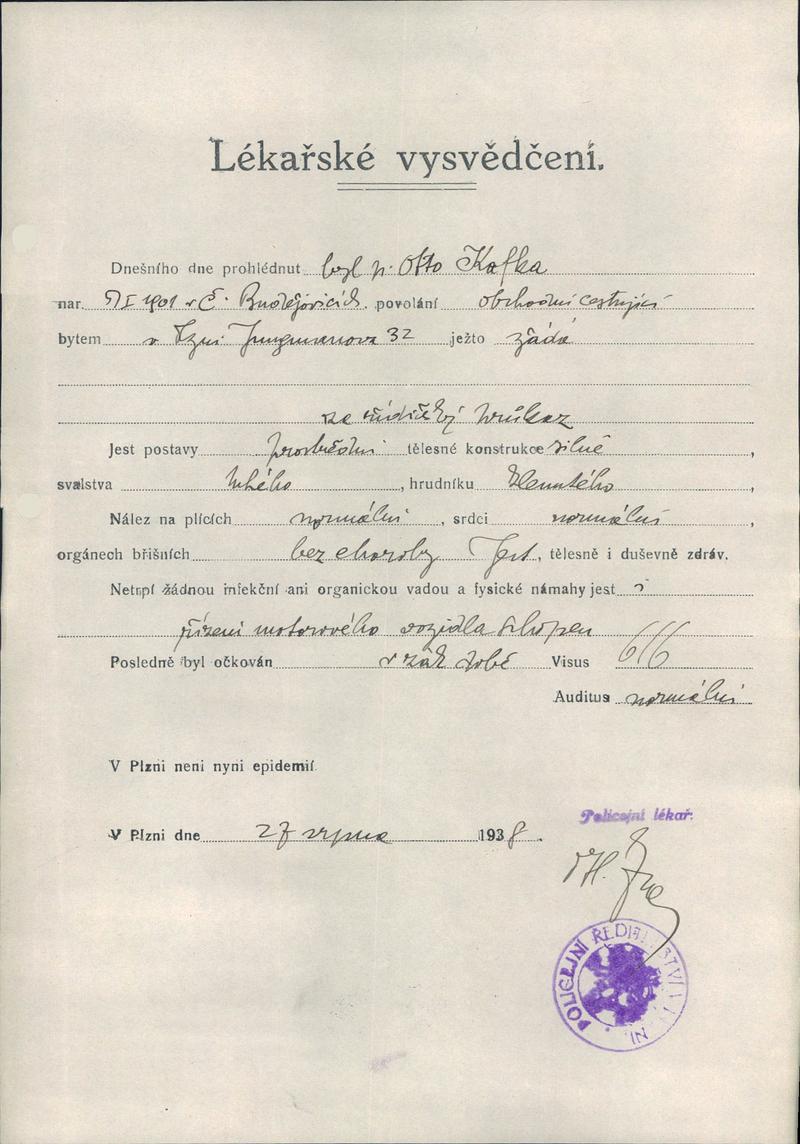 Lékařské vysvědčení.
Dnešního dne prohlédnut byl p. Otto Kafka
nar. 5/I 1901 v Č. Budějovicích povolání obchodní cestující
bytem v Plzni Jungmanova 32 ježto žádá
za řidičský průkaz
Jest postavy prostřední tělesné konstrukce silné,
svalstva tuhého, hrudníku klenutého,
Nález na plících normální, srdci normální,
orgánech břišních bez choroby Jest, tělesně i duševně zdráv.
Netrpí žádnou infekční ani organickou vadou a fysické námahy jest
řízení motorového vozidla schopen
Posledně byl očkován v zák. době Visus 6/6
Auditus normální
V Plzni neni nyni epidemií.
Policejní lékař:
V Plzni dne 27 srpna 1938.
POLICEJNÍ ŘEDITELSTVÍ V PLZNI